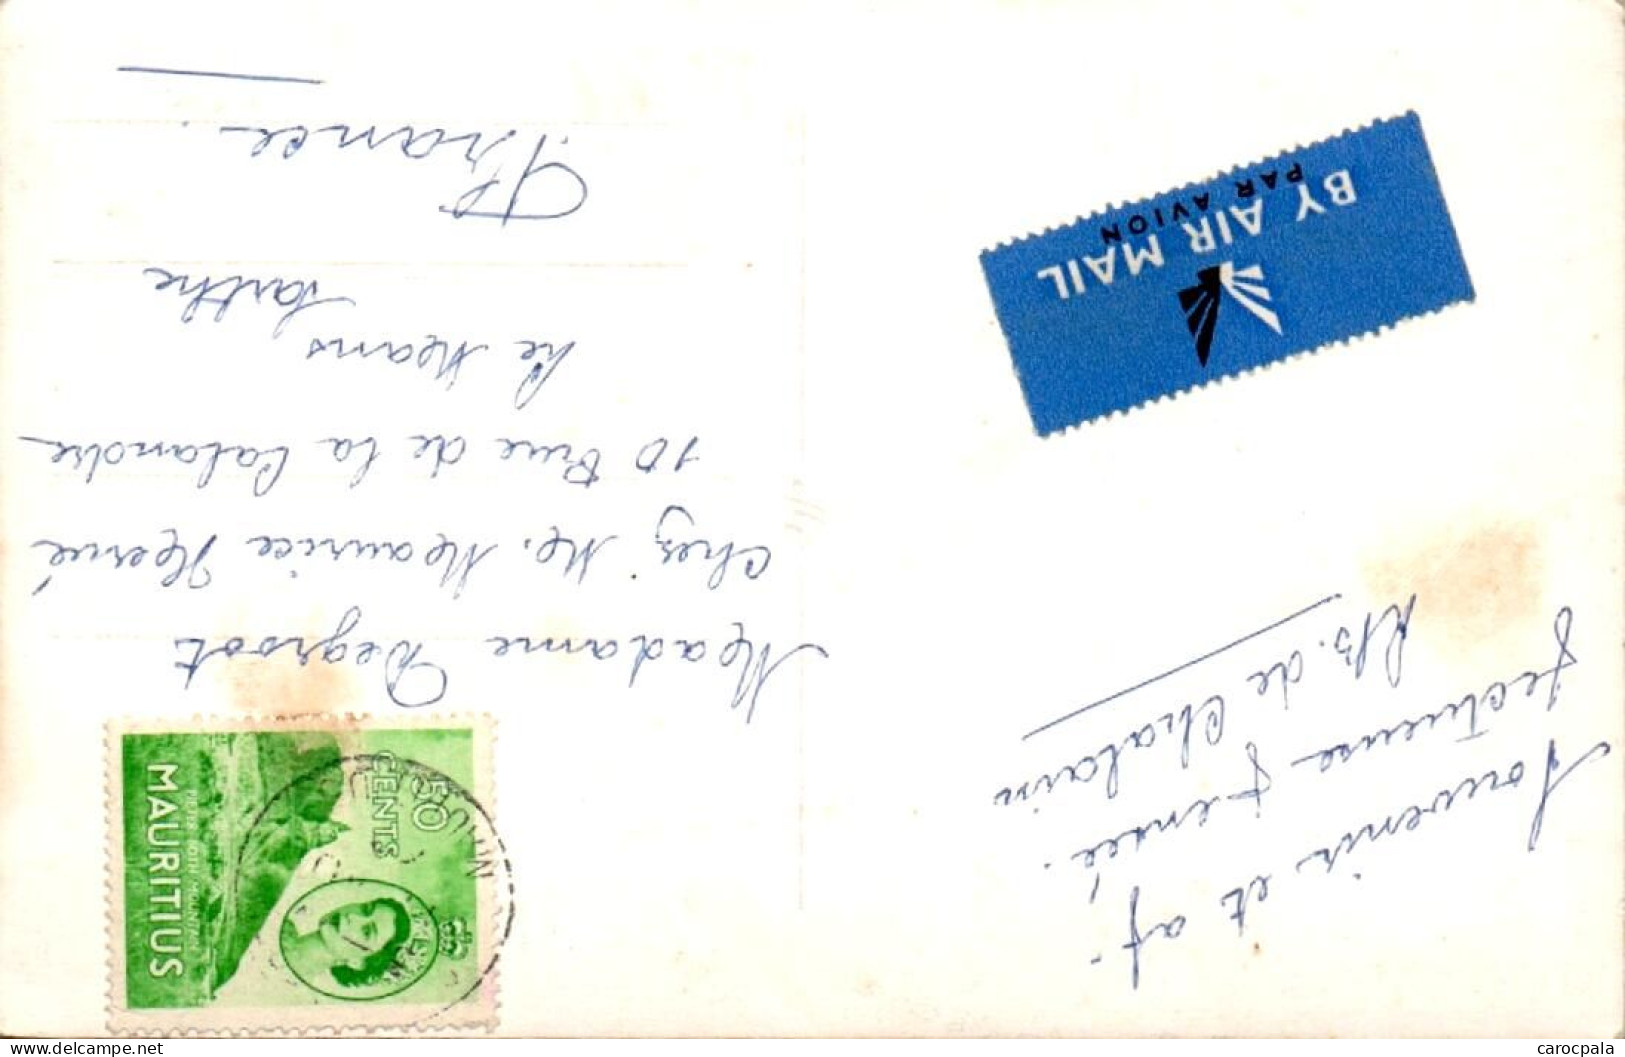 Souvenir et af-
fectueuse pensée.
de Chalain
BY AIR MAIL
PAR AVION
50
CENTS
MAURITIUS
PIETER BOTH MOUNTAIN
Madame Degroot
Chez M. Maurice Hervé
10 Rue de la Calandre
Le Mans
Sarthe
France.
carocpala